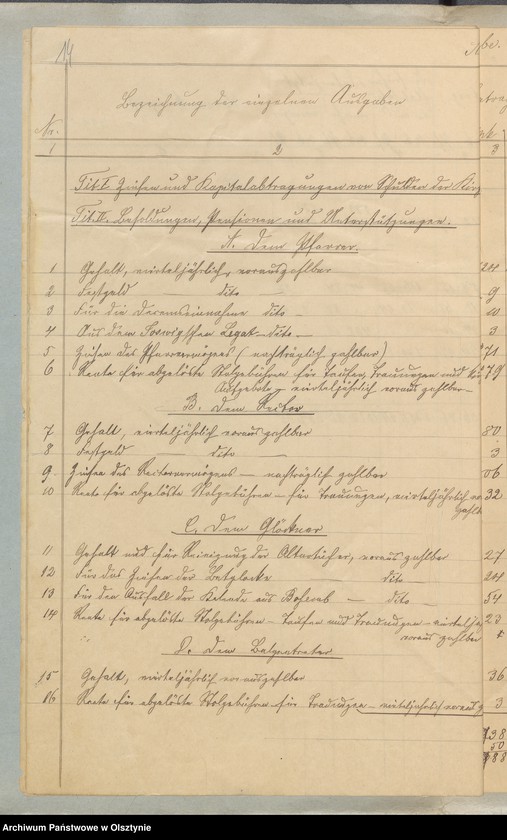 14
Bezeichnung der einzelnen Ausgaben
Nr.
1 2 3
Tit. I. Zinsen und Kapitalabtragungen von Schulden der
Tit. II. Besoldungen, Pensionen und Unterstützungen.
A. Dem Pfarrer.
1 Gehalt, vierteljährlich, vorauszahlbar 24
2 Festgeld — dito — 9
3 Für die Decemseinnahme dito — 10
4 Aus dem Legat — dito — 3
5 Zinsen des Pfarrvermögens (nachträglich zahlbar) 71
6 Rente für abgelöste Stolgebühren für Taufen, Trauungen und 79
Aufgebote — vierteljährlich voraus zahlbar —
B. Dem Rector
7 Gehalt, vierteljährlich voraus zahlbar 80
8 Festgeld dito — 3
9 Zinsen des Rectorvermögens — nachträglich zahlbar 06
10 Rente für abgelöste Stolgebühren — für Trauungen, vierteljährlich 32
zahlb
C. Dem Glöckner
11 Gehalt und für Reinigung der Altartücher, voraus zahlbar 27
12 Für das Ziehen der Betglocke dito — 24
13 Für den Ausfall der Kalende aus — dito — 54
14 Rente für abgelöste Stolgebühren — Taufen und Trauungen — 23
voraus zahlbar
D. Dem Balgentreter
15 Gehalt, vierteljährlich vorauszahlbar 36
16 Rente für abgelöste Stolgebühren für Trauungen — vierteljährlich voraus 3
738
50
788
Archiwum Państwowe w Olsztynie